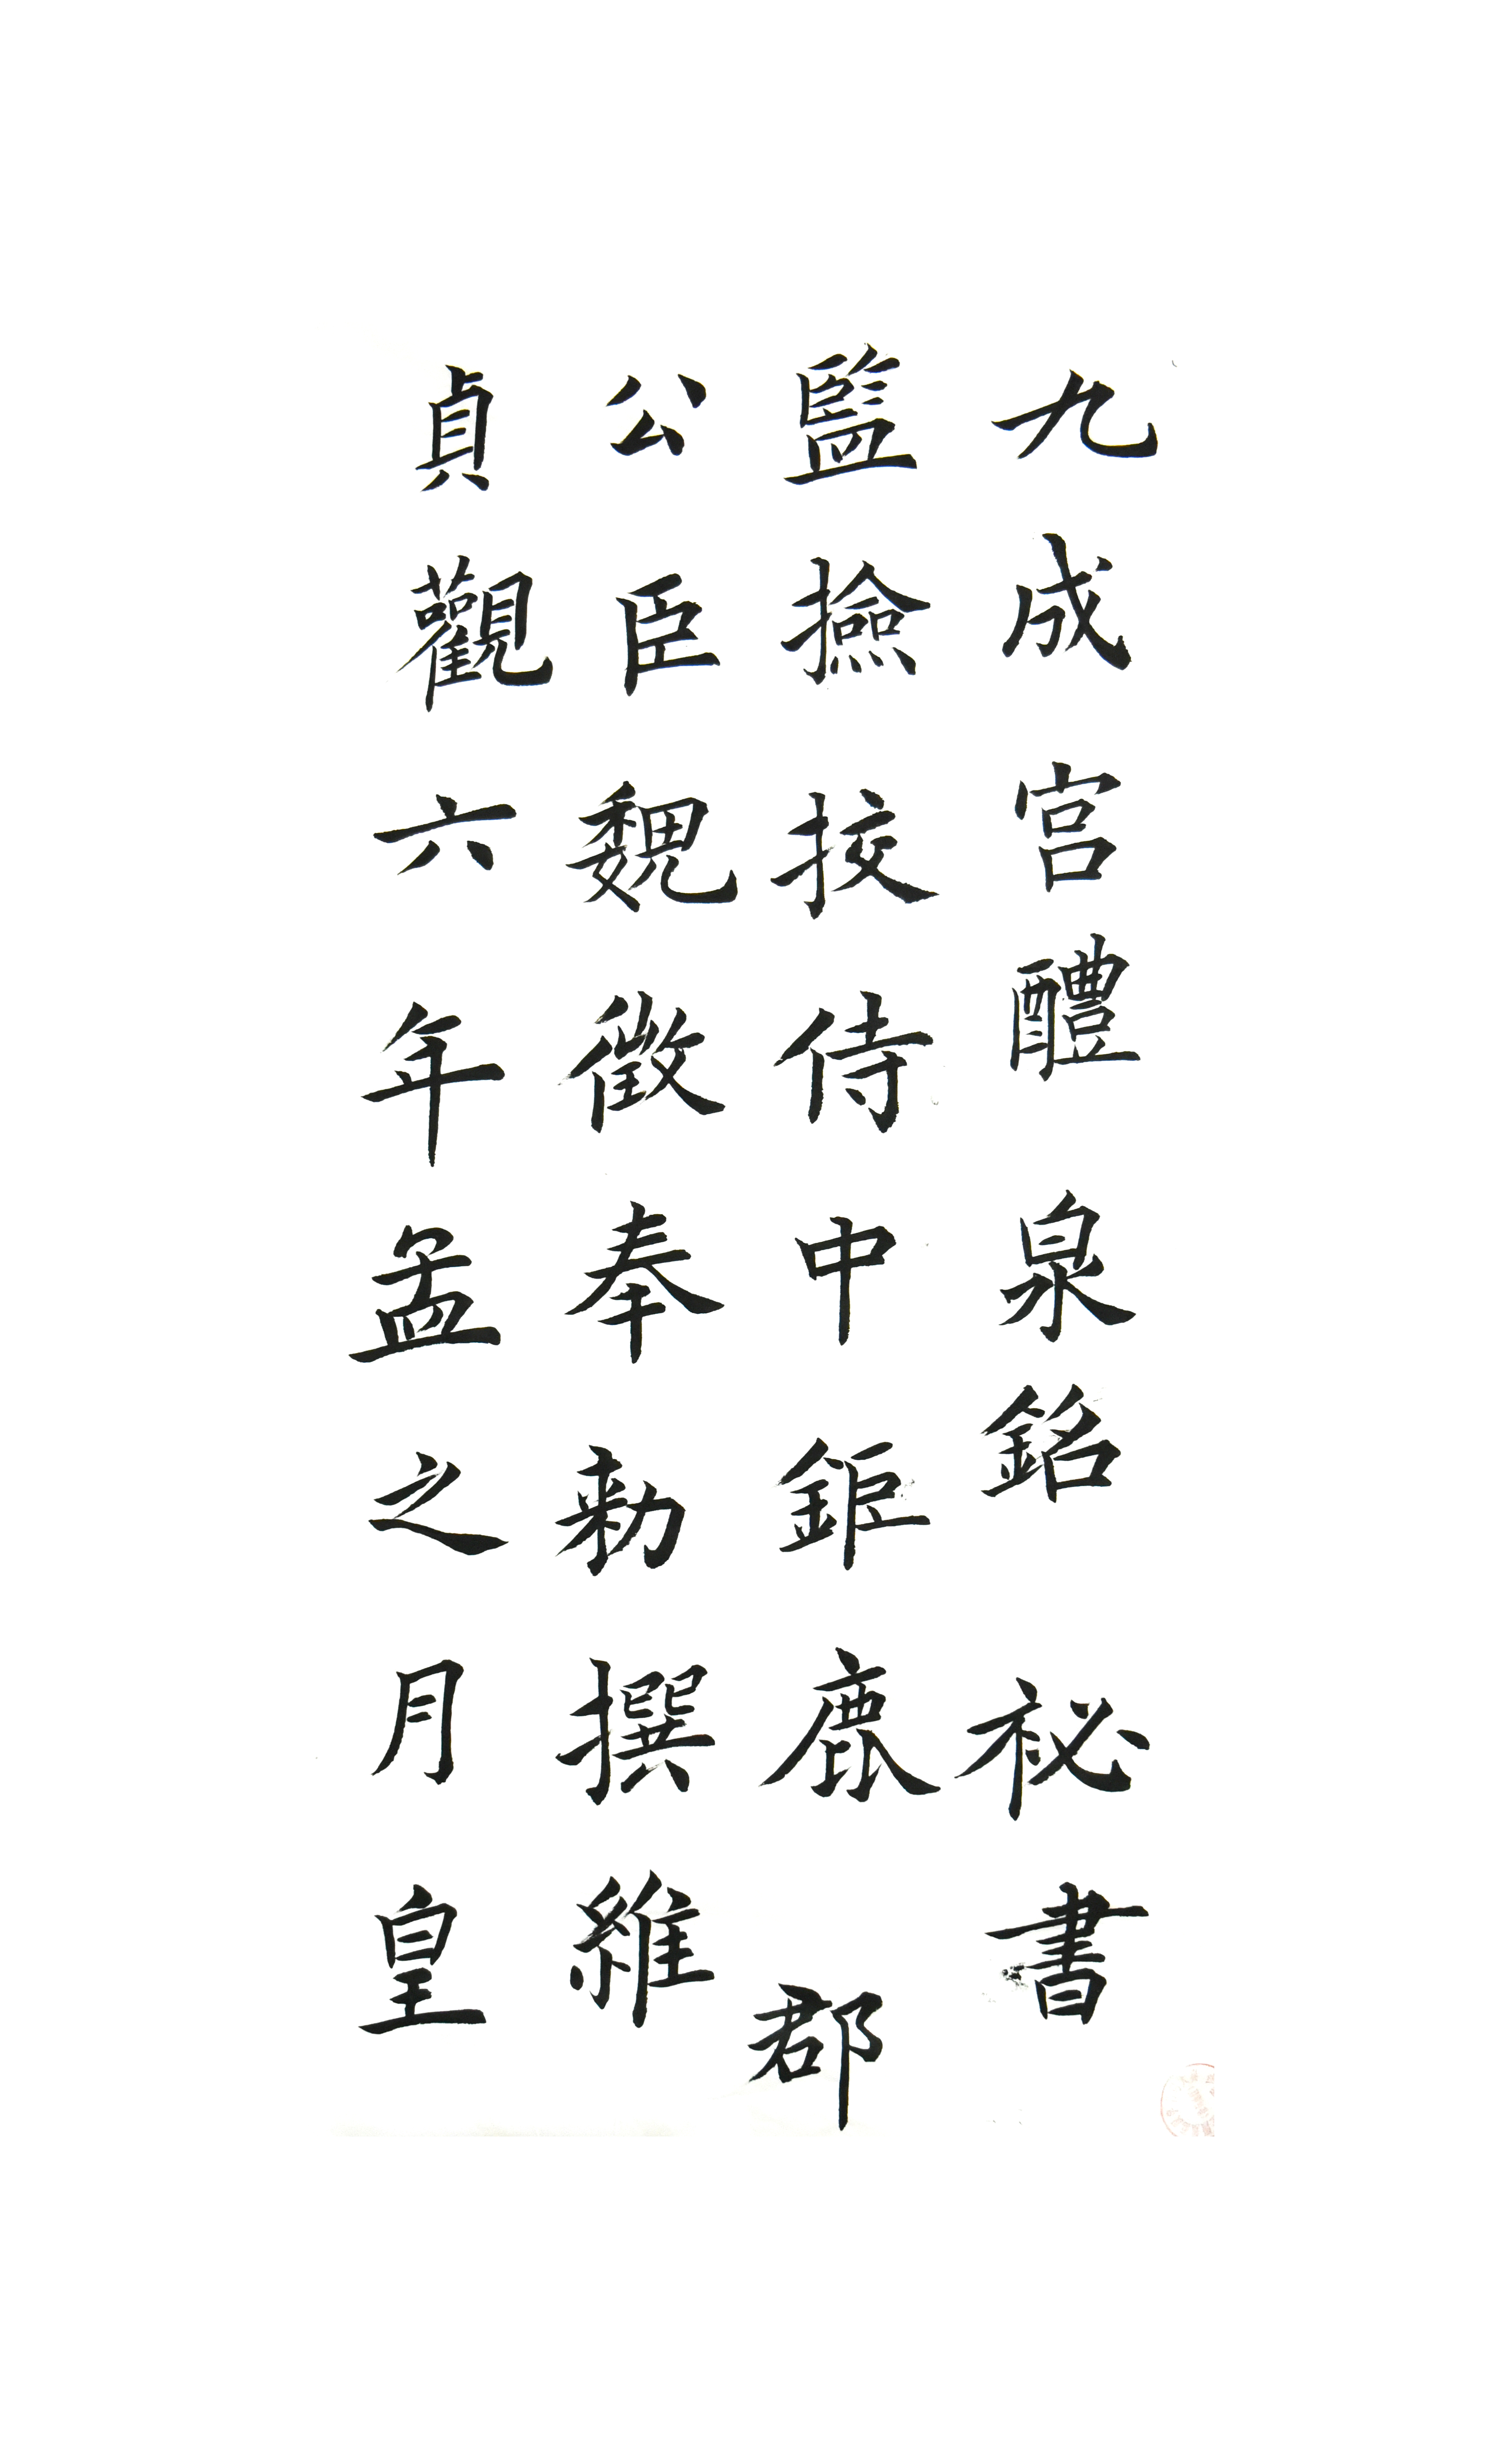 九成宮醴泉銘祕書
監撿挍侍中鉅鹿郡
公臣魏徵奉勅撰維
貞觀六年孟之月皇